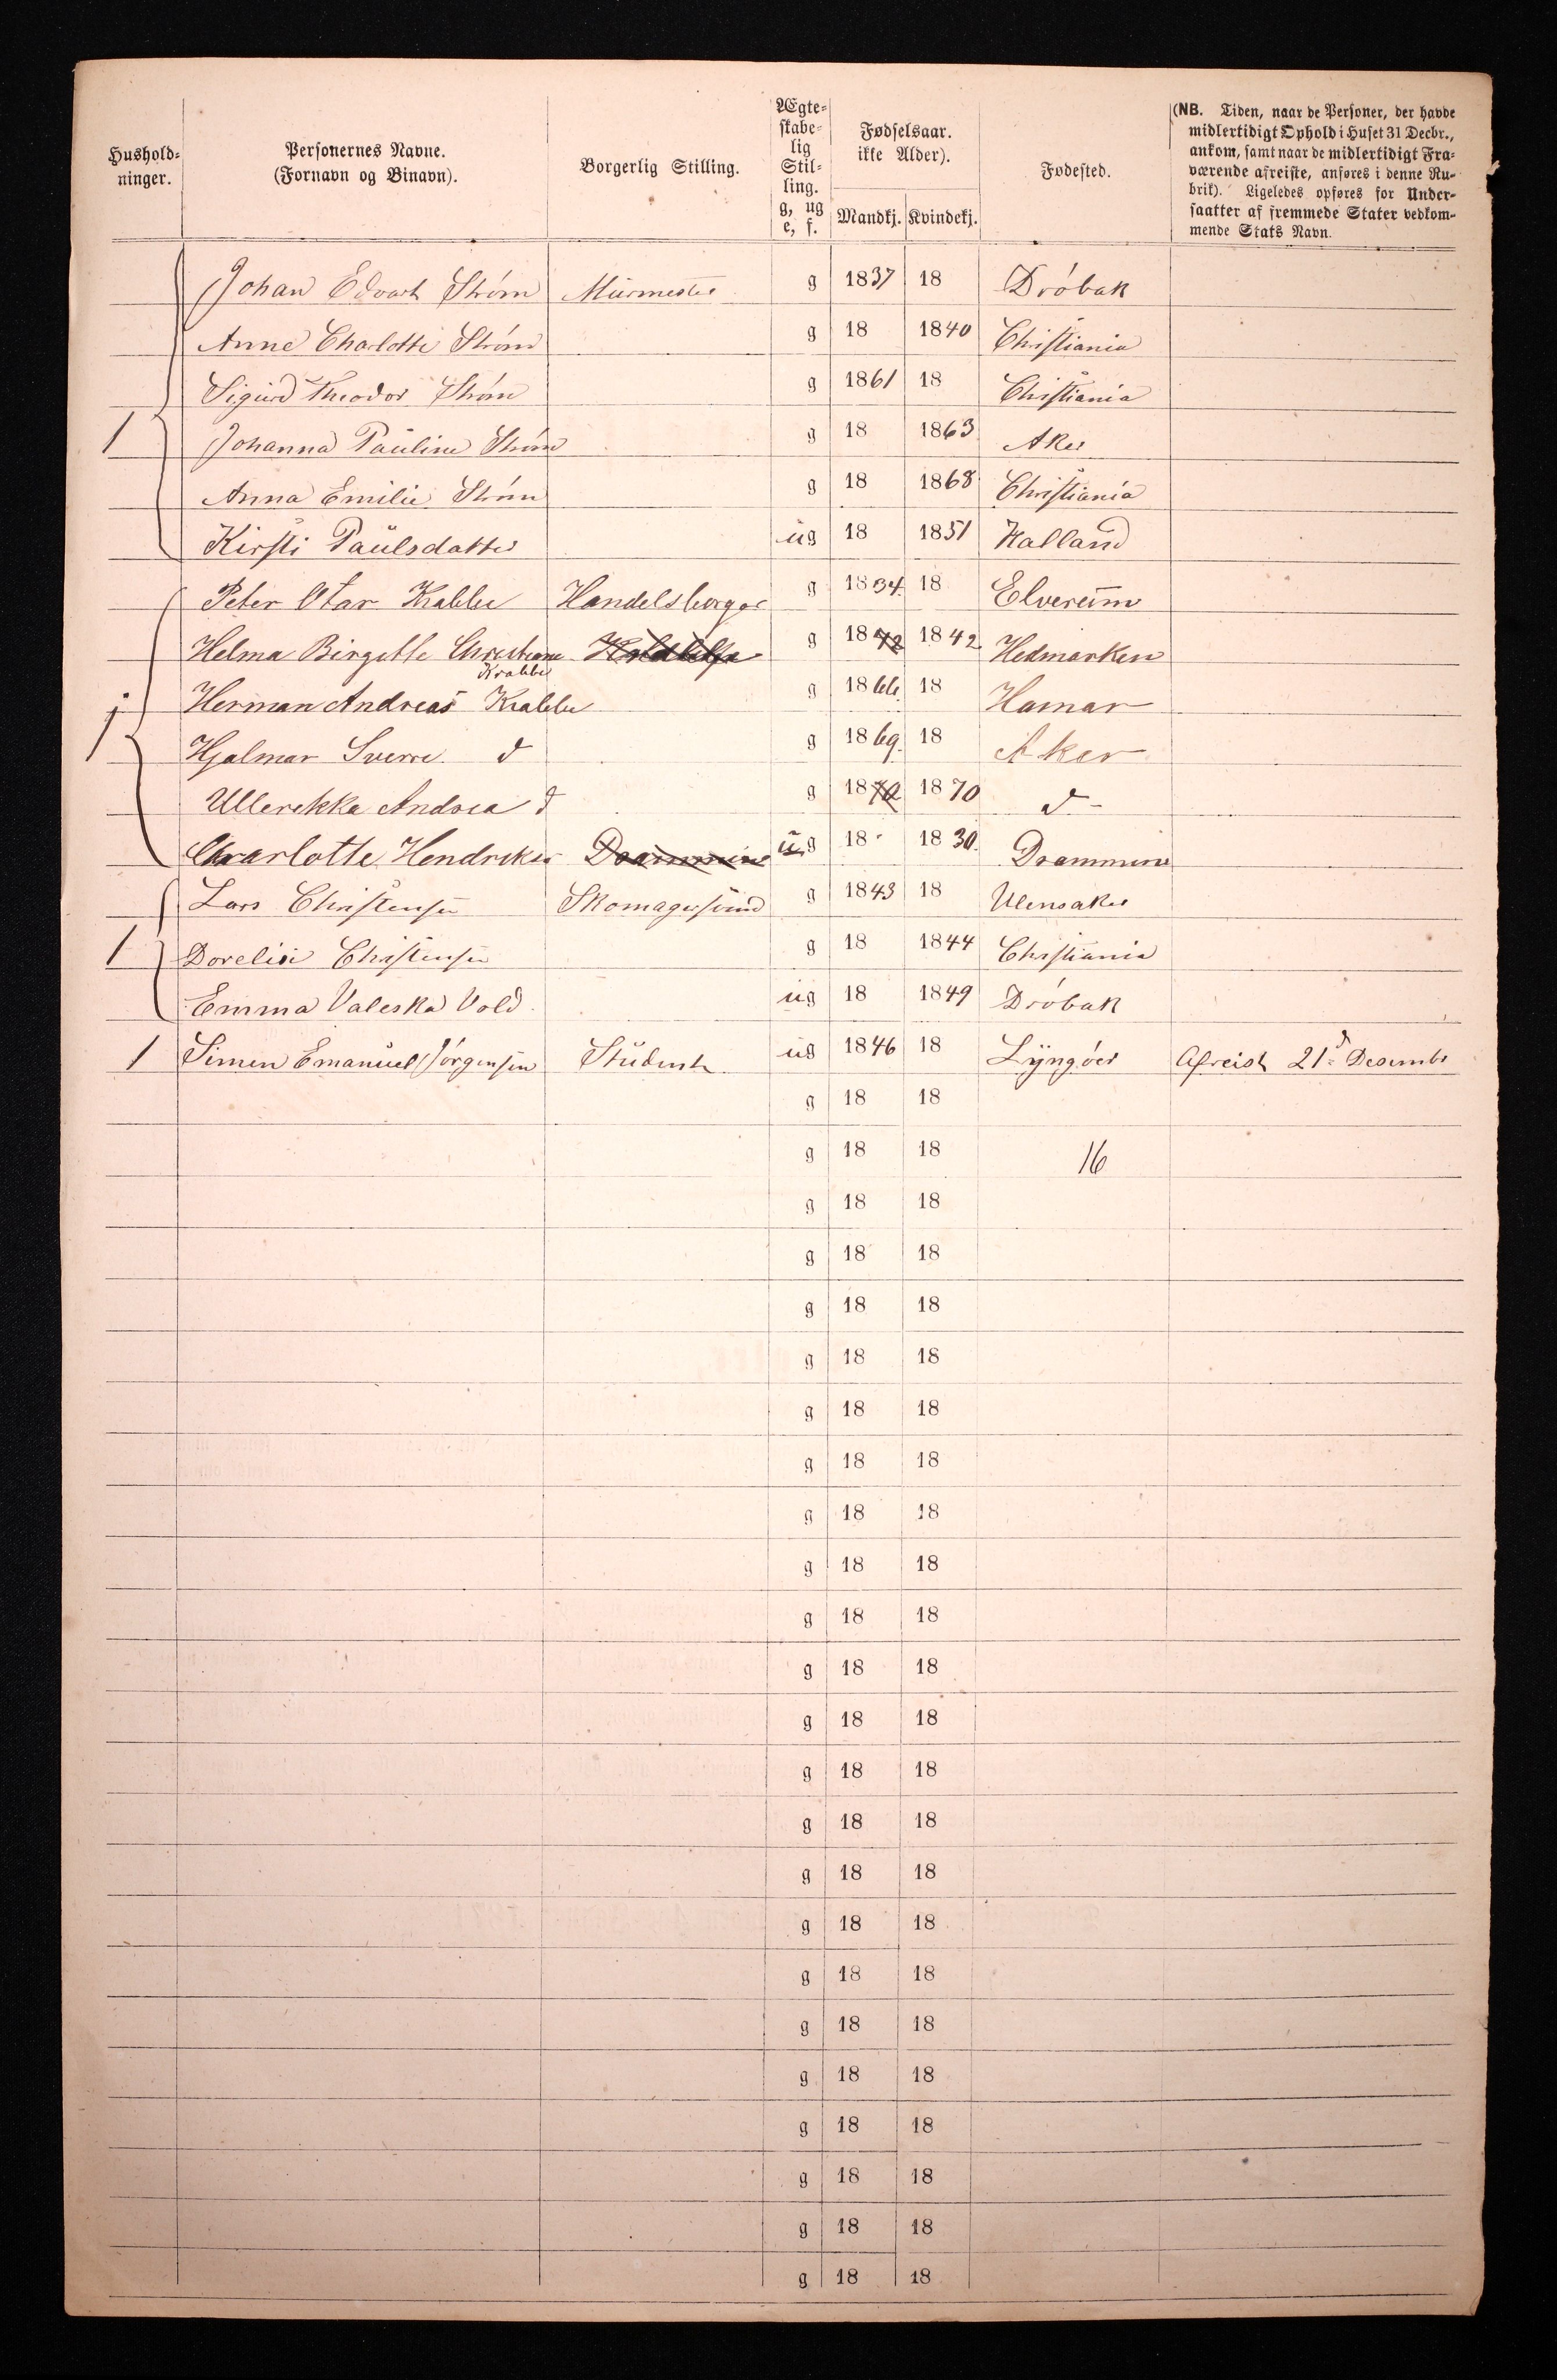 Hushold-
ninger.
Personernes Navne.
(Fornavn og Binavn).
Borgerlig Stilling.
Ægte-
skabe-
lig
Stil-
ling.
g, ug
e, f.
Fødselsaar.
ikke Alder).
Mandkj. Kvindekj.
Fødested.
(NB. Tiden, naar de Personer, der havde
midlertidigt Ophold i Huset 31 Decbr.,
ankom, samt naar de midlertidigt Fra-
værende afreiste, anføres i denne Ru-
brik). Ligeledes opføres for Under-
saatter af fremmede Stater vedkom-
mende Stats Navn.
Johan Edvart Strøm Murmester g 1837 18 Drøbak
Anne Charlotte Strøm g 18 1840 Christiania
Sigurd Theodor Strøm g 1861 18 Christiania
1 Johanna Pauline Strøm g 18 1863 Aker
Anna Emilie Strøm g 18 1868 Christiania
Kirsti Paulsdatter ug 18 1851 Halland
Peter Otar Krabbe Handelsborger g 1834 18 Elverum
Helma Birgitte Christiane g 1842 1842 Hedmarken
Krabbe
1 Herman Andreas Krabbe g 1866 18 Hamar
Hjalmar Sverre d g 1869 18 Aker
Ullerikka Andrea d g 1870 1870 d
Charlotte Hendrikes Drammen ug 18 1830 Drammen
Lars Christensen Skomagersvend g 1843 18 Ulensaker
1 Dorelia Christensen g 18 1844 Christiania
Emma Valeska Vold ug 18 1849 Drøbak
1 Simen Emanuel Jørgensen Student ug 1846 18 Lyngøer Afreist 21de Desembr
g 18 18
g 18 18 16
g 18 18
g 18 18
g 18 18
g 18 18
g 18 18
g 18 18
g 18 18
g 18 18
g 18 18
g 18 18
g 18 18
g 18 18
g 18 18
g 18 18
g 18 18
g 18 18
g 18 18
g 18 18
g 18 18
g 18 18
g 18 18
g 18 18